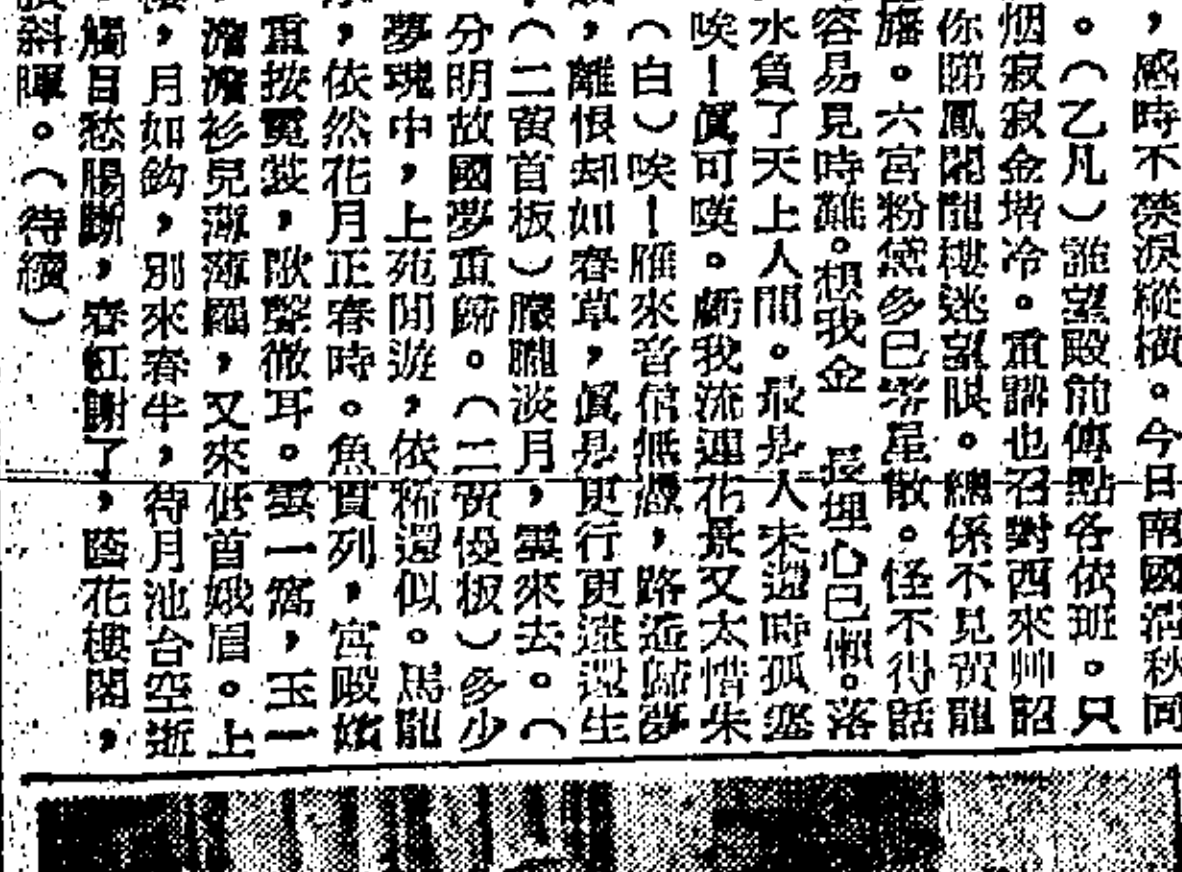 ，感時不禁淚縱橫。今日南國淸秋同
。（乙凡）誰望殿前傳點各依班。只
烟寂寂金堦冷。重也召對西來詔
你睇鳳閣龍樓迷望眼。總係不見賀龍
旛。六宮粉黛多已星散。怪不得話
容易見時難。想我金 長埋心已懶。落
水負了天上人間。最是人未還時孤
唉！眞可嘆。虧我流連花景又太惜朱
（白）唉！雁來音信無憑，路近歸夢
，離恨却如春草，眞是更行更遠還生
（二黃首板）朦朧淡月，雲來去。（
分明故國夢重歸。（二黃慢板）多少
夢魂中，上苑閒游，依稀還似。馬龍
，依然花月正春時。魚貫列，宮殿嬪
重按霓裳，歌聲徹耳。雲一窩，玉一
澹澹衫兒薄薄羅，又來低首娥眉。上
，月如鈎，別來春半，待月池台空逝
觸目愁腸斷，春紅謝了，花樓閣，
斜暉。（待續）